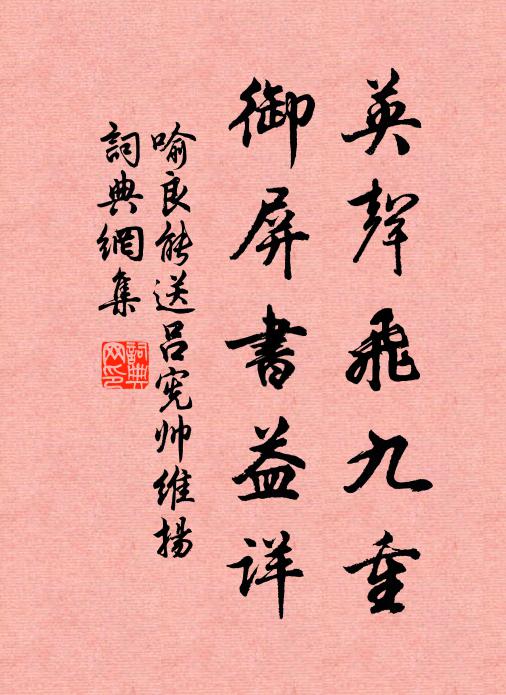 英聲飛九重
御屏書益详
喻良能送吕宪帅维揚
詞典網集
詞典网印